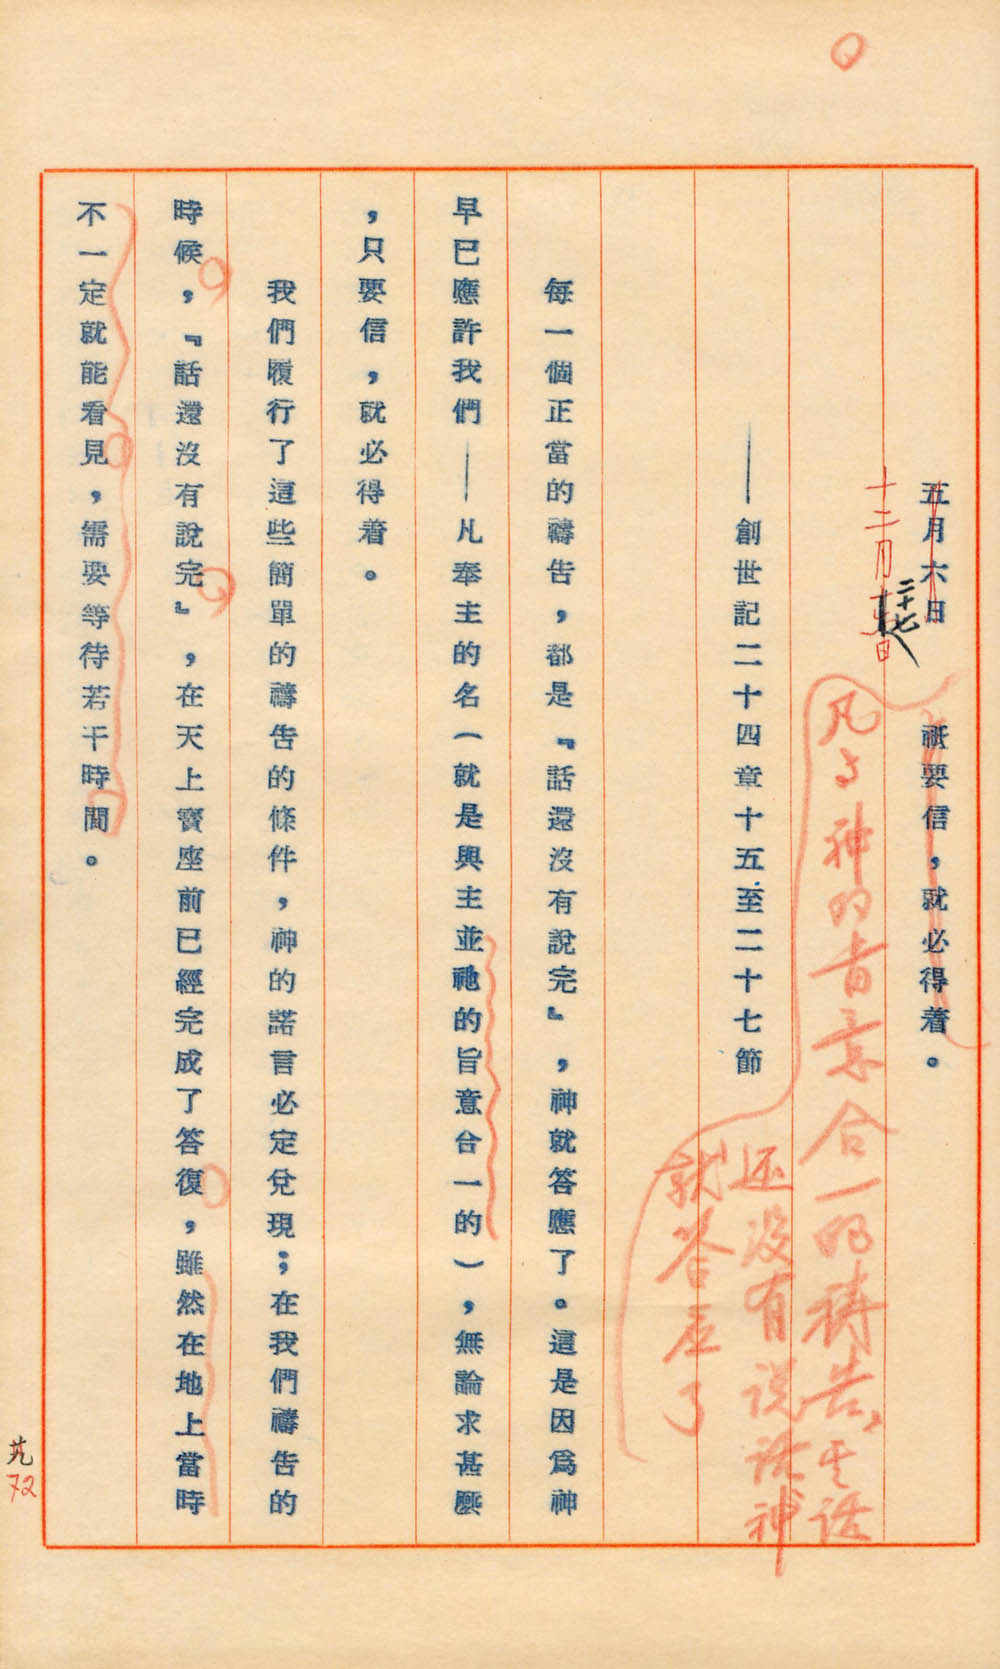 五月六日　祇要信，就必得着。
十二月
二十七
日
凡与神的旨意合一的祷告，
话
还没有说话神
就答应了
——創世記二十四章十五至二十七節
每一個正當的禱告，都是『話還沒有說完』，神就答應了。這是因爲神
早已應許我們——凡奉主的名（就是與主並祂的旨意合一的），無論求甚麼
，只要信，就必得着。
我們履行了這些簡單的禱告的條件，神的諾言必定兌現；在我們禱告的
時候，『話還沒有說完』，在天上寶座前已經完成了答復，雖然在地上當時
不一定就能看見，需要等待若干時間。
72